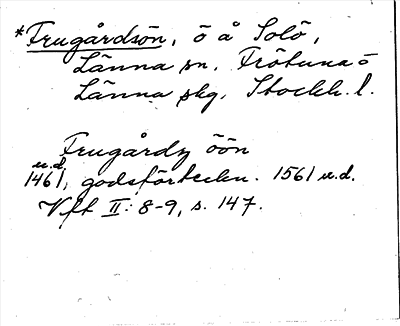 *Frugårdsön, ö å Solö,
Länna sn, Frötuna o
Länna skg, Stockh. l.
Frugårdz öön
u.d.
1461, godsförteckn. 1561 u.d.
Vft II: 8-9, s. 147.